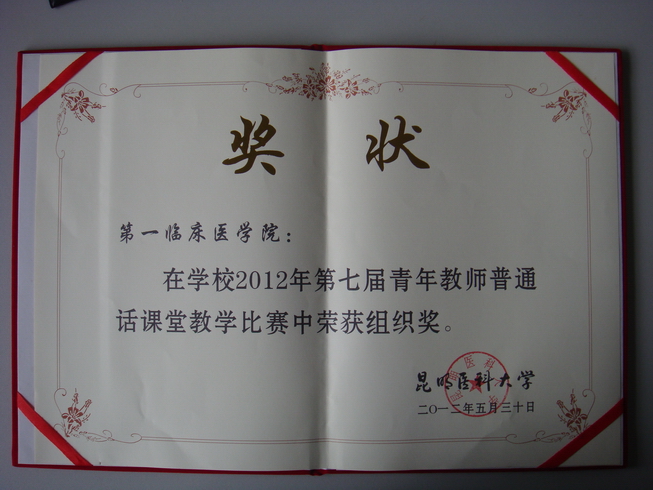 奖 状
第一临床医学院：
在学校2012年第七届青年教师普通
话课堂教学比赛中荣获组织奖。
昆明医科大学
二〇一二年五月三十日